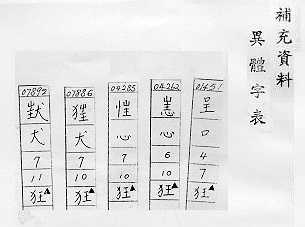 補充資料
異體字表
01451
呈
口
4
7
狂▲
04262
心
6
10
狂▲
04285
心
7
10
狂▲
07886
犬
7
10
狂▲
07893
犬
7
11
狂▲